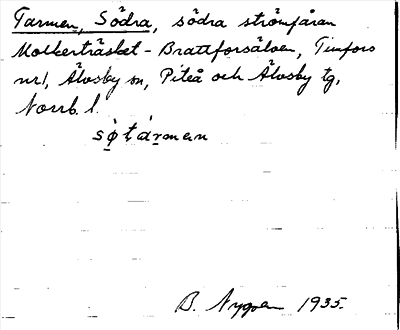 Tarmen, Södra, södra strömfåran
Molkerträsket - Brattforsälven, Timfors
nr 1, Älvsby sn, Piteå och Älvsby tg,
Norrb. l.
sø̀tármen
B. Nygren 1935.